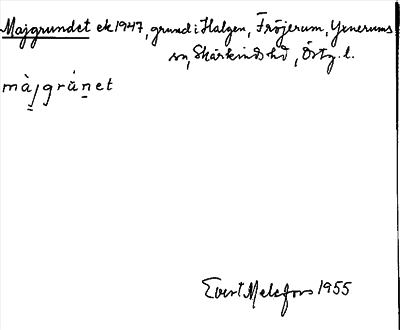 Majgrundet ek 1947, grund i Halgen, Fröjerum, Yxnerums
sn, Skärkinds hd, Östg. l.
màjgrúnet
Evert Melefors 1955